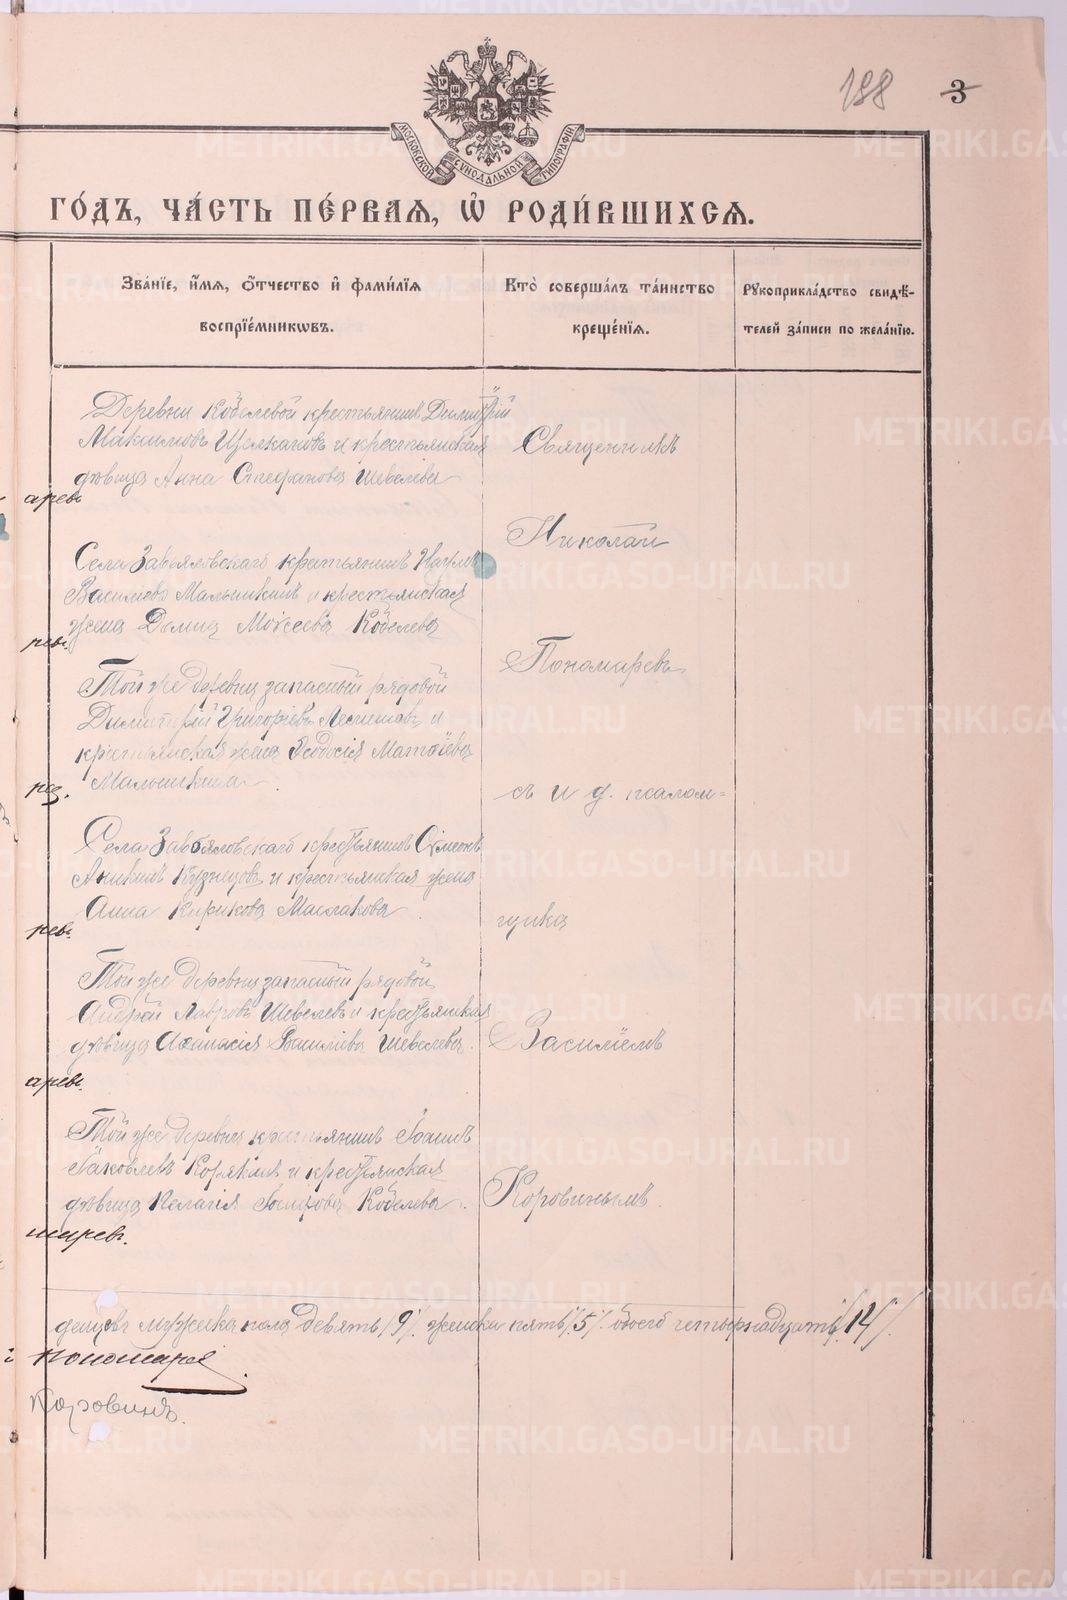 188 3
МОСКОВСКОЙ СѴНОДАЛЬНОЙ ТИПОГРАФІИ
ГО́ДЪ, ЧА́СТЬ ПЕ́РВАЯ, Ѽ РОДИ́ВШИХСЯ.
Зва́нїе, и́мѧ, о́тчество и҆ фами́лїѧ
воспрїе́мникѡвъ.
Кто̀ соверша́лъ та́инство
креще́нїѧ.
Рꙋкоприкла́дство свидѣ́-
телей за́писи по жела́нїю.
Деревни Кобелевой крестьянинъ Димитрій
Максимовъ Щелкановъ и крестьянская
дѣвица Анна Стефанова Шевелева
Священникъ
арев
Николай
Села Завьяловскаго крестьянинъ Наумъ
Василіевъ Малышкинъ и крестьянская
жена Домна Моѵсеева Кобелева
рев.
Пономаревъ
Той же деревни запасный рядовой
Димитрій Григоріевъ и
крестьянская жена Ѳеодосія Матѳіева
Малышкина
съ и д. псалом=
Села Завьяловскаго крестьянинъ Сѵмеонъ
Аникинъ Кузнецовъ и крестьянская жена
Анна Кирикова Маслакова
щика
рев.
Той же деревни запасный рядовой
Андрей Лавровъ Шевелевъ и крестьянская
дѣвица Аѳанасія Василіева Шевелева.
Василіемъ
арев.
Той же деревни крестьянинъ Іоаннъ
Іаковлевъ Корякинъ и крестьянская
дѣвица Пелагія Іосифова Кобелева.
Коровинымъ
марев.
денцовъ мужеска пола девять /9/ женска пять /5/ обоего четырнадцать /14/.
Пономарев
Коровинъ.